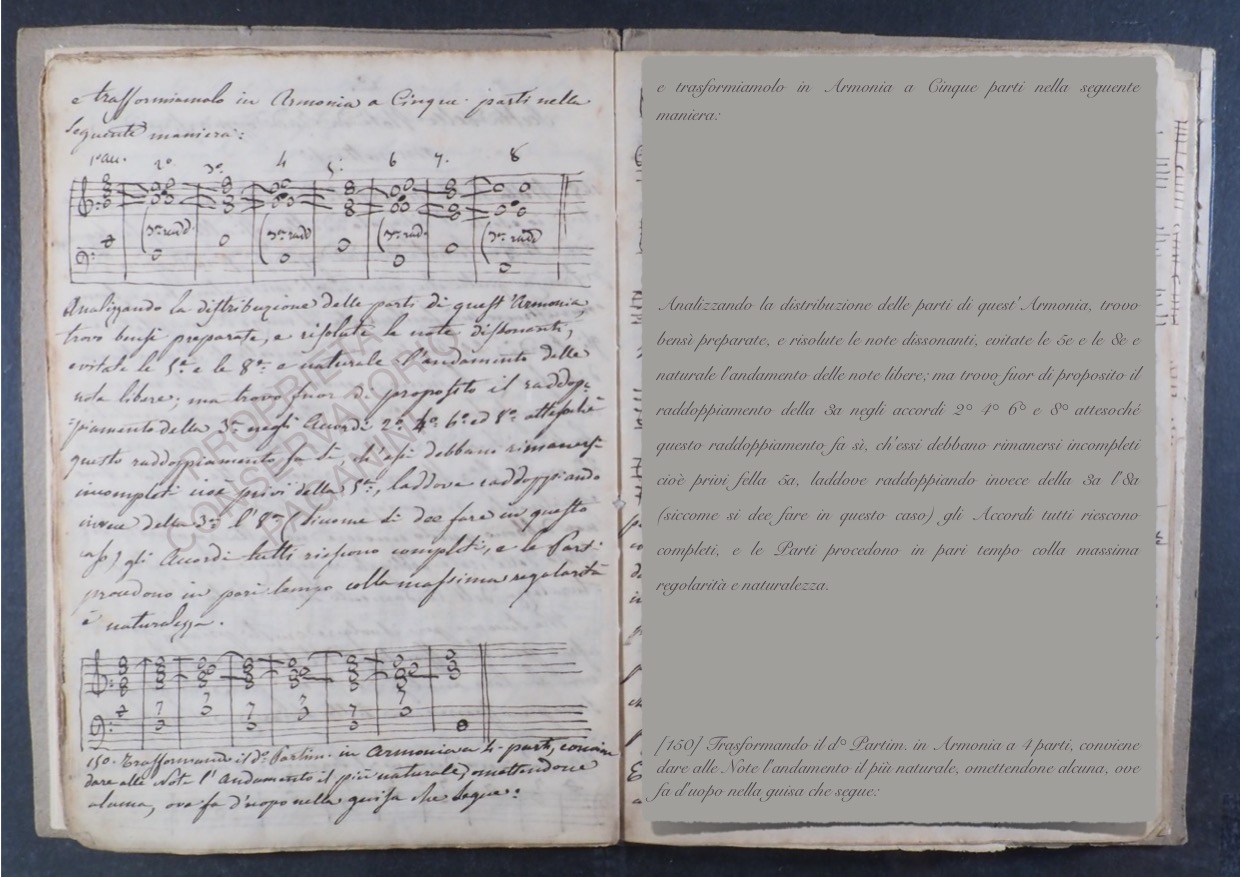 e trasformiamolo in Armonia a Cinque parti nella
seguente maniera:
1° acc. 2° 3° 4 5° 6 7. 8
(3a radd (3a radd (3a rad. (3a radd
Analizzando la distribuzione delle parti di quest'Armonia,
trovo bensì preparate, e risolute le note dissonanti,
evitate le 5e e le 8e e naturale l'andamento delle
note libere; ma trovo fuor di proposito il raddop-
piamento della 3a negli Accordi 2° 4° 6° ed 8° attesochè
questo raddoppiamento fa sì ch'essi debbano rimanersi
incompleti cioè privi della 5a, laddove raddoppiando
invece della 3a l'8a (siccome si dee fare in questo
caso) gli Accordi tutti riescono completi, e le Parti
procedono in pari tempo colla massima regolarità
e naturalezza.
7 7 7 7 7 7
3 3 3
150. Trasformando il d° Partim. in Armonia a 4 parti, convien
dare alle Note l'andamento il più naturale, omettendone
alcuna, ove fa d'uopo nella guisa che segue:
PROPRIETÀ
CONSERVATORIO
PAGANINI
e trasformiamolo in Armonia a Cinque parti nella seguente
maniera:
Analizzando la distribuzione delle parti di quest'Armonia, trovo
bensì preparate, e risolute le note dissonanti, evitate le 5e e le 8e e
naturale l'andamento delle note libere; ma trovo fuor di proposito il
raddoppiamento della 3a negli accordi 2° 4° 6° e 8° attesoché
questo raddoppiamento fa sì, ch'essi debbano rimanersi incompleti
cioè privi fella 5a, laddove raddoppiando invece della 3a l'8a
(siccome si dee fare in questo caso) gli Accordi tutti riescono
completi, e le Parti procedono in pari tempo colla massima
regolarità e naturalezza.
[150] Trasformando il d° Partim. in Armonia a 4 parti, conviene
dare alle Note l'andamento il più naturale, omettendone alcuna, ove
fa d'uopo nella guisa che segue: